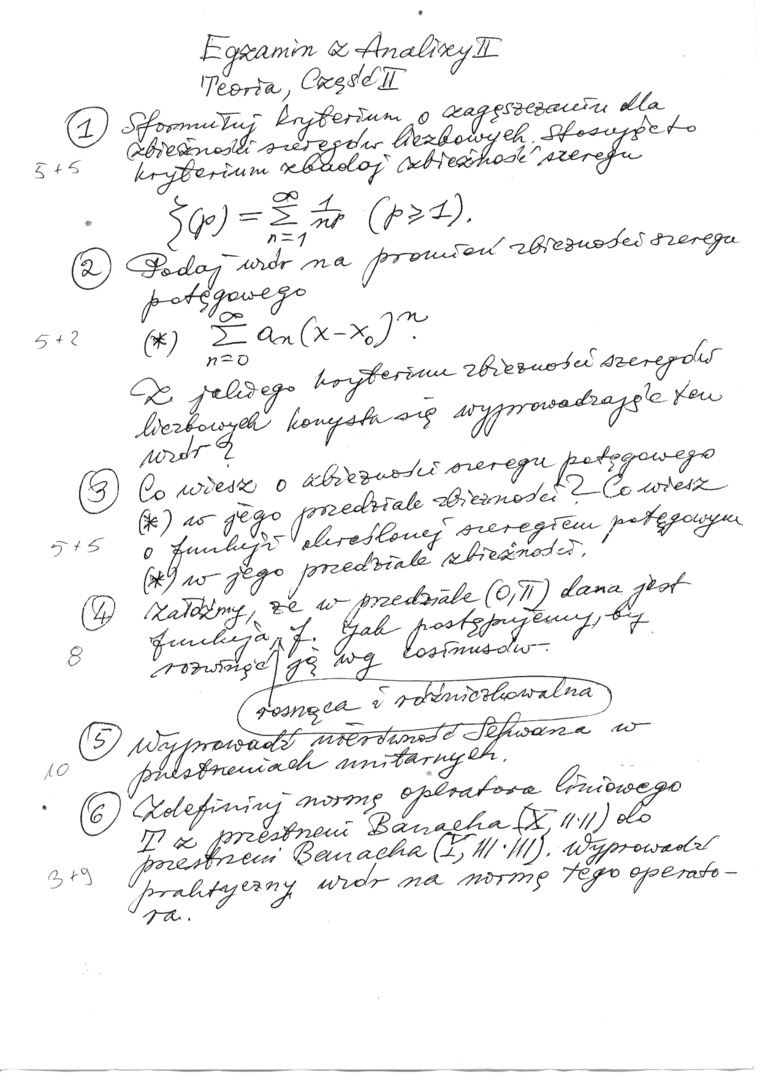 Egzamin z Analizy II
Teoria, Część II
① Sformułuj kryterium o zagęszczaniu dla
zbieżności szeregów liczbowych. Stosując to
5+5 kryterium zbadaj zbieżność szeregu
ζ(p) = ∑_{n=1}^{∞} 1/n^p (p ≥ 1).
② Podaj wzór na promień zbieżności szeregu
potęgowego
5+2 (*) ∑_{n=0}^{∞} a_n (x-x_0)^n.
Z jakiego kryterium zbieżności szeregów
liczbowych korzysta się wyprowadzając ten
wzór?
③ Co wiesz o zbieżności szeregu potęgowego
(*) w jego przedziale zbieżności? Co wiesz
5+5 o funkcji określonej szeregiem potęgowym
(*) w jego przedziale zbieżności.
④ Załóżmy, że w przedziale (0,π) dana jest
funkcja f. Jak postępujemy, by
8 rozwinąć ją wg cosinusów.
rosnąca i różniczkowalna
⑤ Wyprowadź nierówność Schwarza w
10 przestrzeniach unitarnych.
⑥ Zdefiniuj normę operatora liniowego
T z przestrzeni Banacha (X, ||·||) do
przestrzeni Banacha (Y, |||·|||). Wyprowadź
3+9 praktyczny wzór na normę tego operato-
ra.